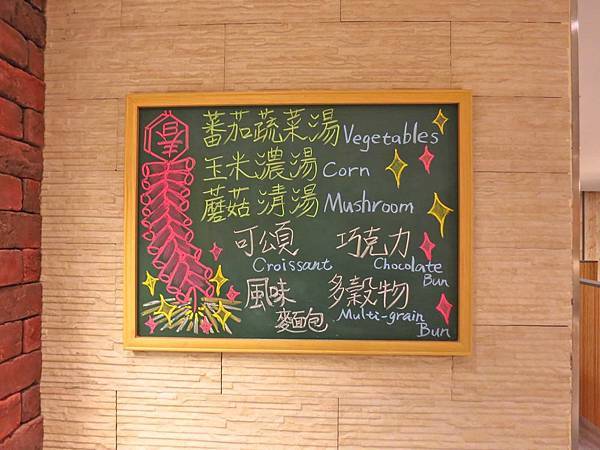 蕃茄蔬菜湯 Vegetables
玉米濃湯 Corn
蘑菇清湯 Mushroom
可頌 巧克力
Croissant Chocolate Bun
風味 多穀物
麵包 Multi-grain Bun